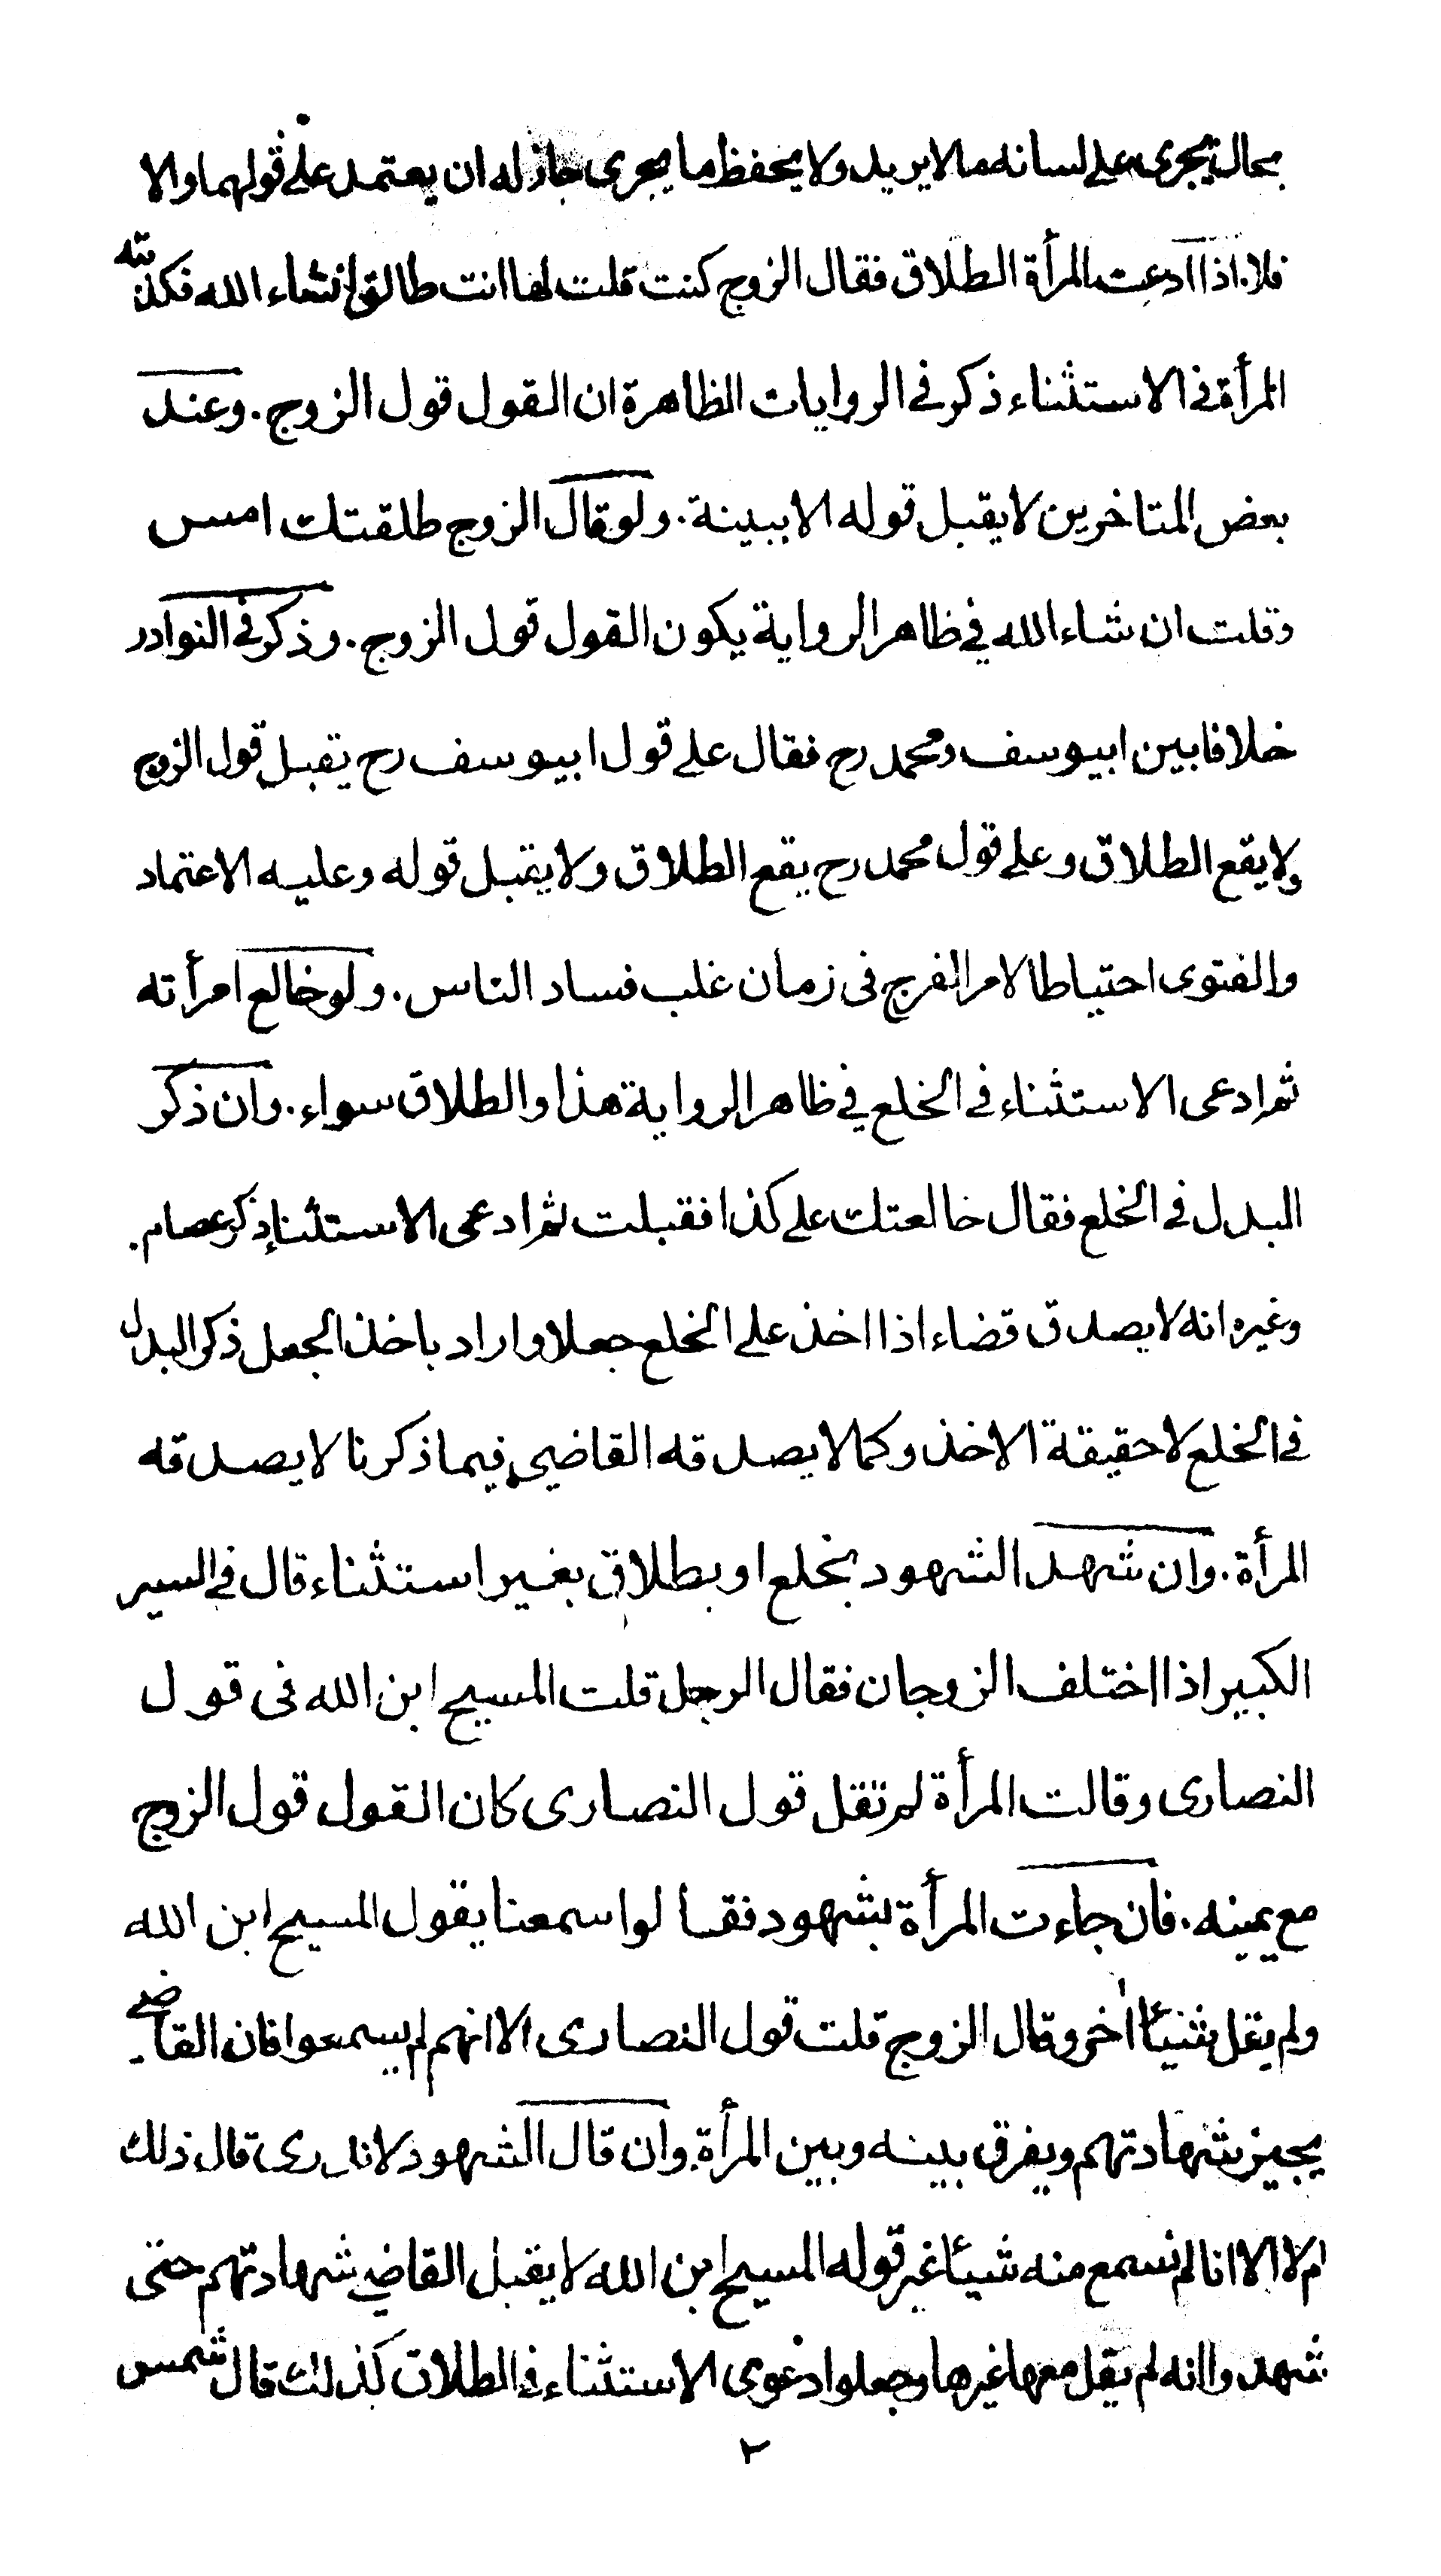 بحال يجرى على لسانه ما لا يريد ولا يحفظ ما يجرى جاز له ان يعتمد على قولهما والا
فلا. اذا ادعت المرأة الطلاق فقال الزوج كنت قلت لها انت طالق ان شاء الله فكذبته
المرأة فى الاستثناء ذكر فى الروايات الظاهرة ان القول قول الزوج. وعند
بعض المتاخرين لا يقبل قوله الا ببينة. ولو قال الزوج طلقتك امس
وقلت ان شاء الله في ظاهر الرواية يكون القول قول الزوج. وذكر فى النوادر
خلافا بين ابيوسف ومحمد رح فقال على قول ابيوسف رح يقبل قول الزوج
ولا يقع الطلاق وعلى قول محمد رح يقع الطلاق ولا يقبل قوله وعليه الاعتماد
والفتوى احتياطا لامر الفرج فى زمان غلب فساد الناس. ولو خالع امرأته
ثم ادعى الاستثناء فى الخلع في ظاهر الرواية هذا والطلاق سواء. وان ذكر
البدل فى الخلع فقال خالعتك على كذا فقبلت ثم ادعى الاستثناء ذكر عصام.
وغيره انه لا يصدق قضاء اذا اخذ على الخلع جعلا واراد باخذ الجعل ذكر البدل
فى الخلع لا حقيقة الاخذ وكما لا يصدقه القاضي فيما ذكرنا لا يصدقه
المرأة. وان شهد الشهود بخلع او بطلاق بغير استثناء قال فى السير
الكبير اذا اختلف الزوجان فقال الرجل قلت المسيح ابن الله فى قول
النصارى وقالت المرأة لم تقل قول النصارى كان القول قول الزوج
مع يمينه. فان جاءت المرأة بشهود فقالوا سمعنا يقول المسيح ابن الله
ولم يقل شيئا اخر وقال الزوج قلت قول النصارى الا انهم لم يسمعوا فان القاضى
يجيز شهادتهم ويفرق بينه وبين المرأة. وان قال الشهود لا ندرى قال ذلك
ام لا الا انا لم نسمع منه شيئا غير قوله المسيح ابن الله لا يقبل القاضي شهادتهم حتى
شهدوا انه لم يقل معها غيرها وجعلوا دعوى الاستثناء فى الطلاق كذلك قال شمس
٢